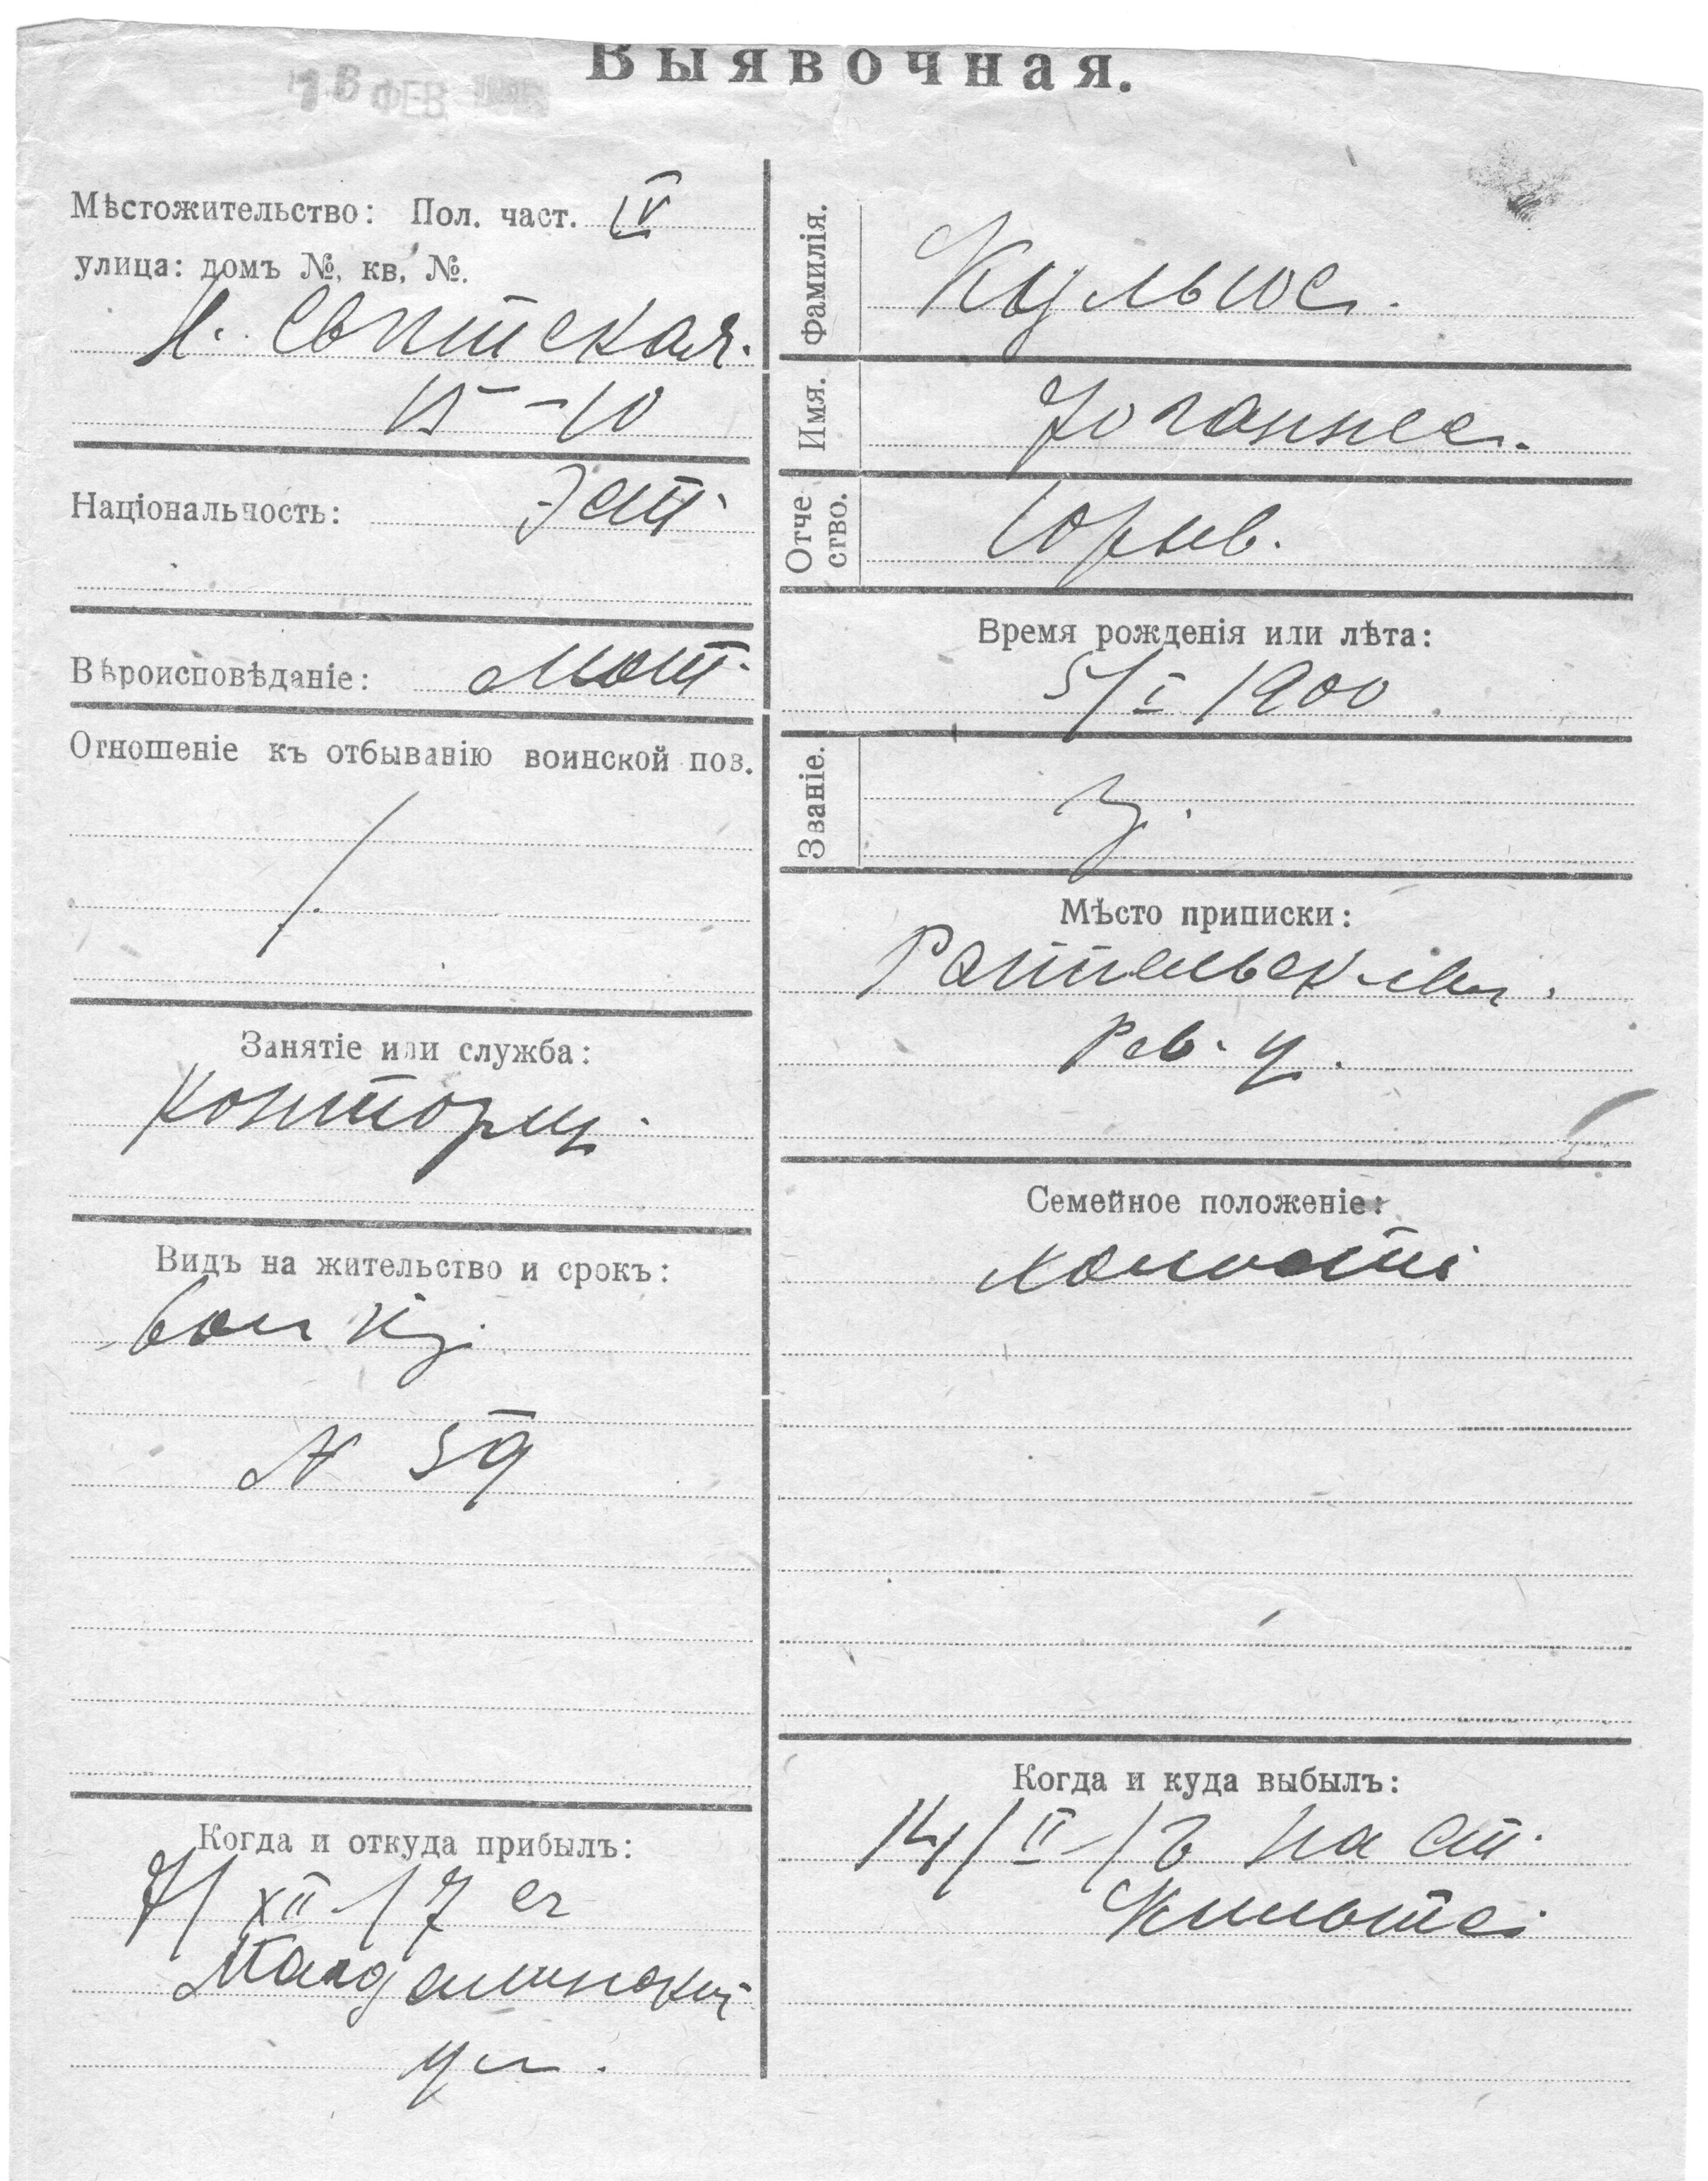 Выявочная.
16 ФЕВ
Мѣстожительство: Пол. част. IV
улица: домъ №, кв, №.
15-10
Національность: Эст.
Вѣроисповѣданіе: Лют.
Отношеніе къ отбыванію воинской пов.
Занятіе или служба:
Конторщ.
Видъ на жительство и срокъ:
№ 59
Когда и откуда прибылъ:
7/XII-17 съ
ул.
Фамилія. Кульюс.
Имя. Иоганнес.
Отчество. Юрьев.
Время рожденія или лѣта:
5/I 1900
Званіе.
Мѣсто приписки:
Раппельск.
Рев. у.
Семейное положеніе:
холост
Когда и куда выбылъ:
14/II-18 на ст.